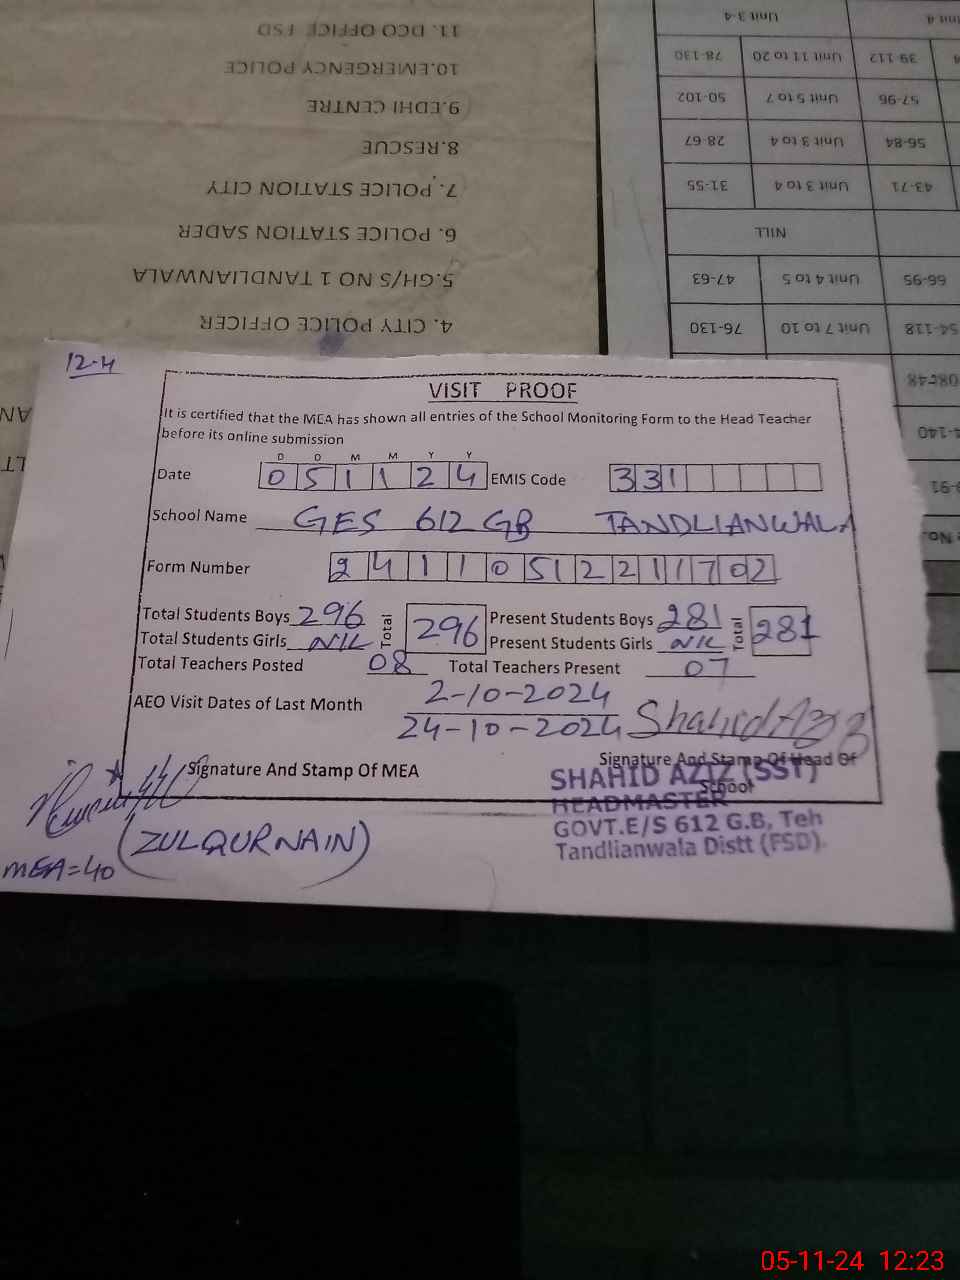 11. DCO OFFICE FSD
10.EMERGENCY POLICE
9.EDHI CENTRE
8.RESCUE
7. POLICE STATION CITY
6. POLICE STATION SADER
5.GH/S NO 1 TANDLIANWALA
4. CITY POLICE OFFICER
Unit 3-4
78-130 Unit 11 to 20 39-112
50-102 Unit 5 to 7 57-96
28-67 Unit 3 to 4 56-84
31-55 Unit 3 to 4 43-71
NILL
47-63 Unit 4 to 5 66-95
76-130 Unit 7 to 10 54-118
12-4
VISIT PROOF
It is certified that the MEA has shown all entries of the School Monitoring Form to the Head Teacher
before its online submission
D D M M Y Y
Date 0 5 1 1 2 4 EMIS Code 3 3 1
School Name GES 612 GB TANDLIANWALA
Form Number 2 4 1 1 0 5 1 2 2 1 1 7 0 2
Total Students Boys 296 Total 296 Present Students Boys 281 Total 281
Total Students Girls NIL Present Students Girls NIL
Total Teachers Posted 08 Total Teachers Present 07
AEO Visit Dates of Last Month 2-10-2024
24-10-2024 Shahid Aziz
Signature And Stamp Of MEA Signature And Stamp Of Head Of
School
SHAHID AZIZ (SST)
HEADMASTER
GOVT.E/S 612 G.B, Teh
Tandlianwala Distt (FSD).
(ZULQURNAIN)
MEA=40
05-11-24 12:23